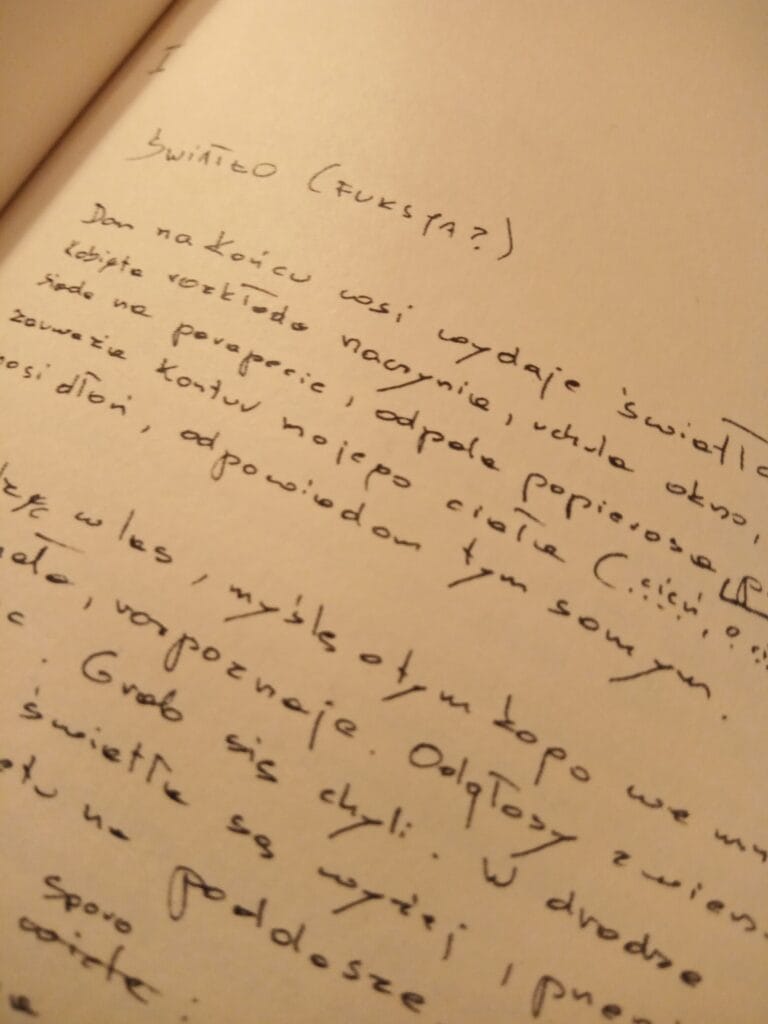 I
ŚWIATŁO (FUKSJA?)
Dom na końcu wsi wydaje światło
kobieta rozkłada naczynia, uchyla okno,
siada na parapecie, odpala papierosa,
zauważa kontur mojego ciała (cień,
dłoń, odpowiadam tym samym.
w las, myślę o tym kogo we
rozpoznaje. Odgłosy
Grab się chyli. W drodze
światła są wyżej,
na poddasze
sporo